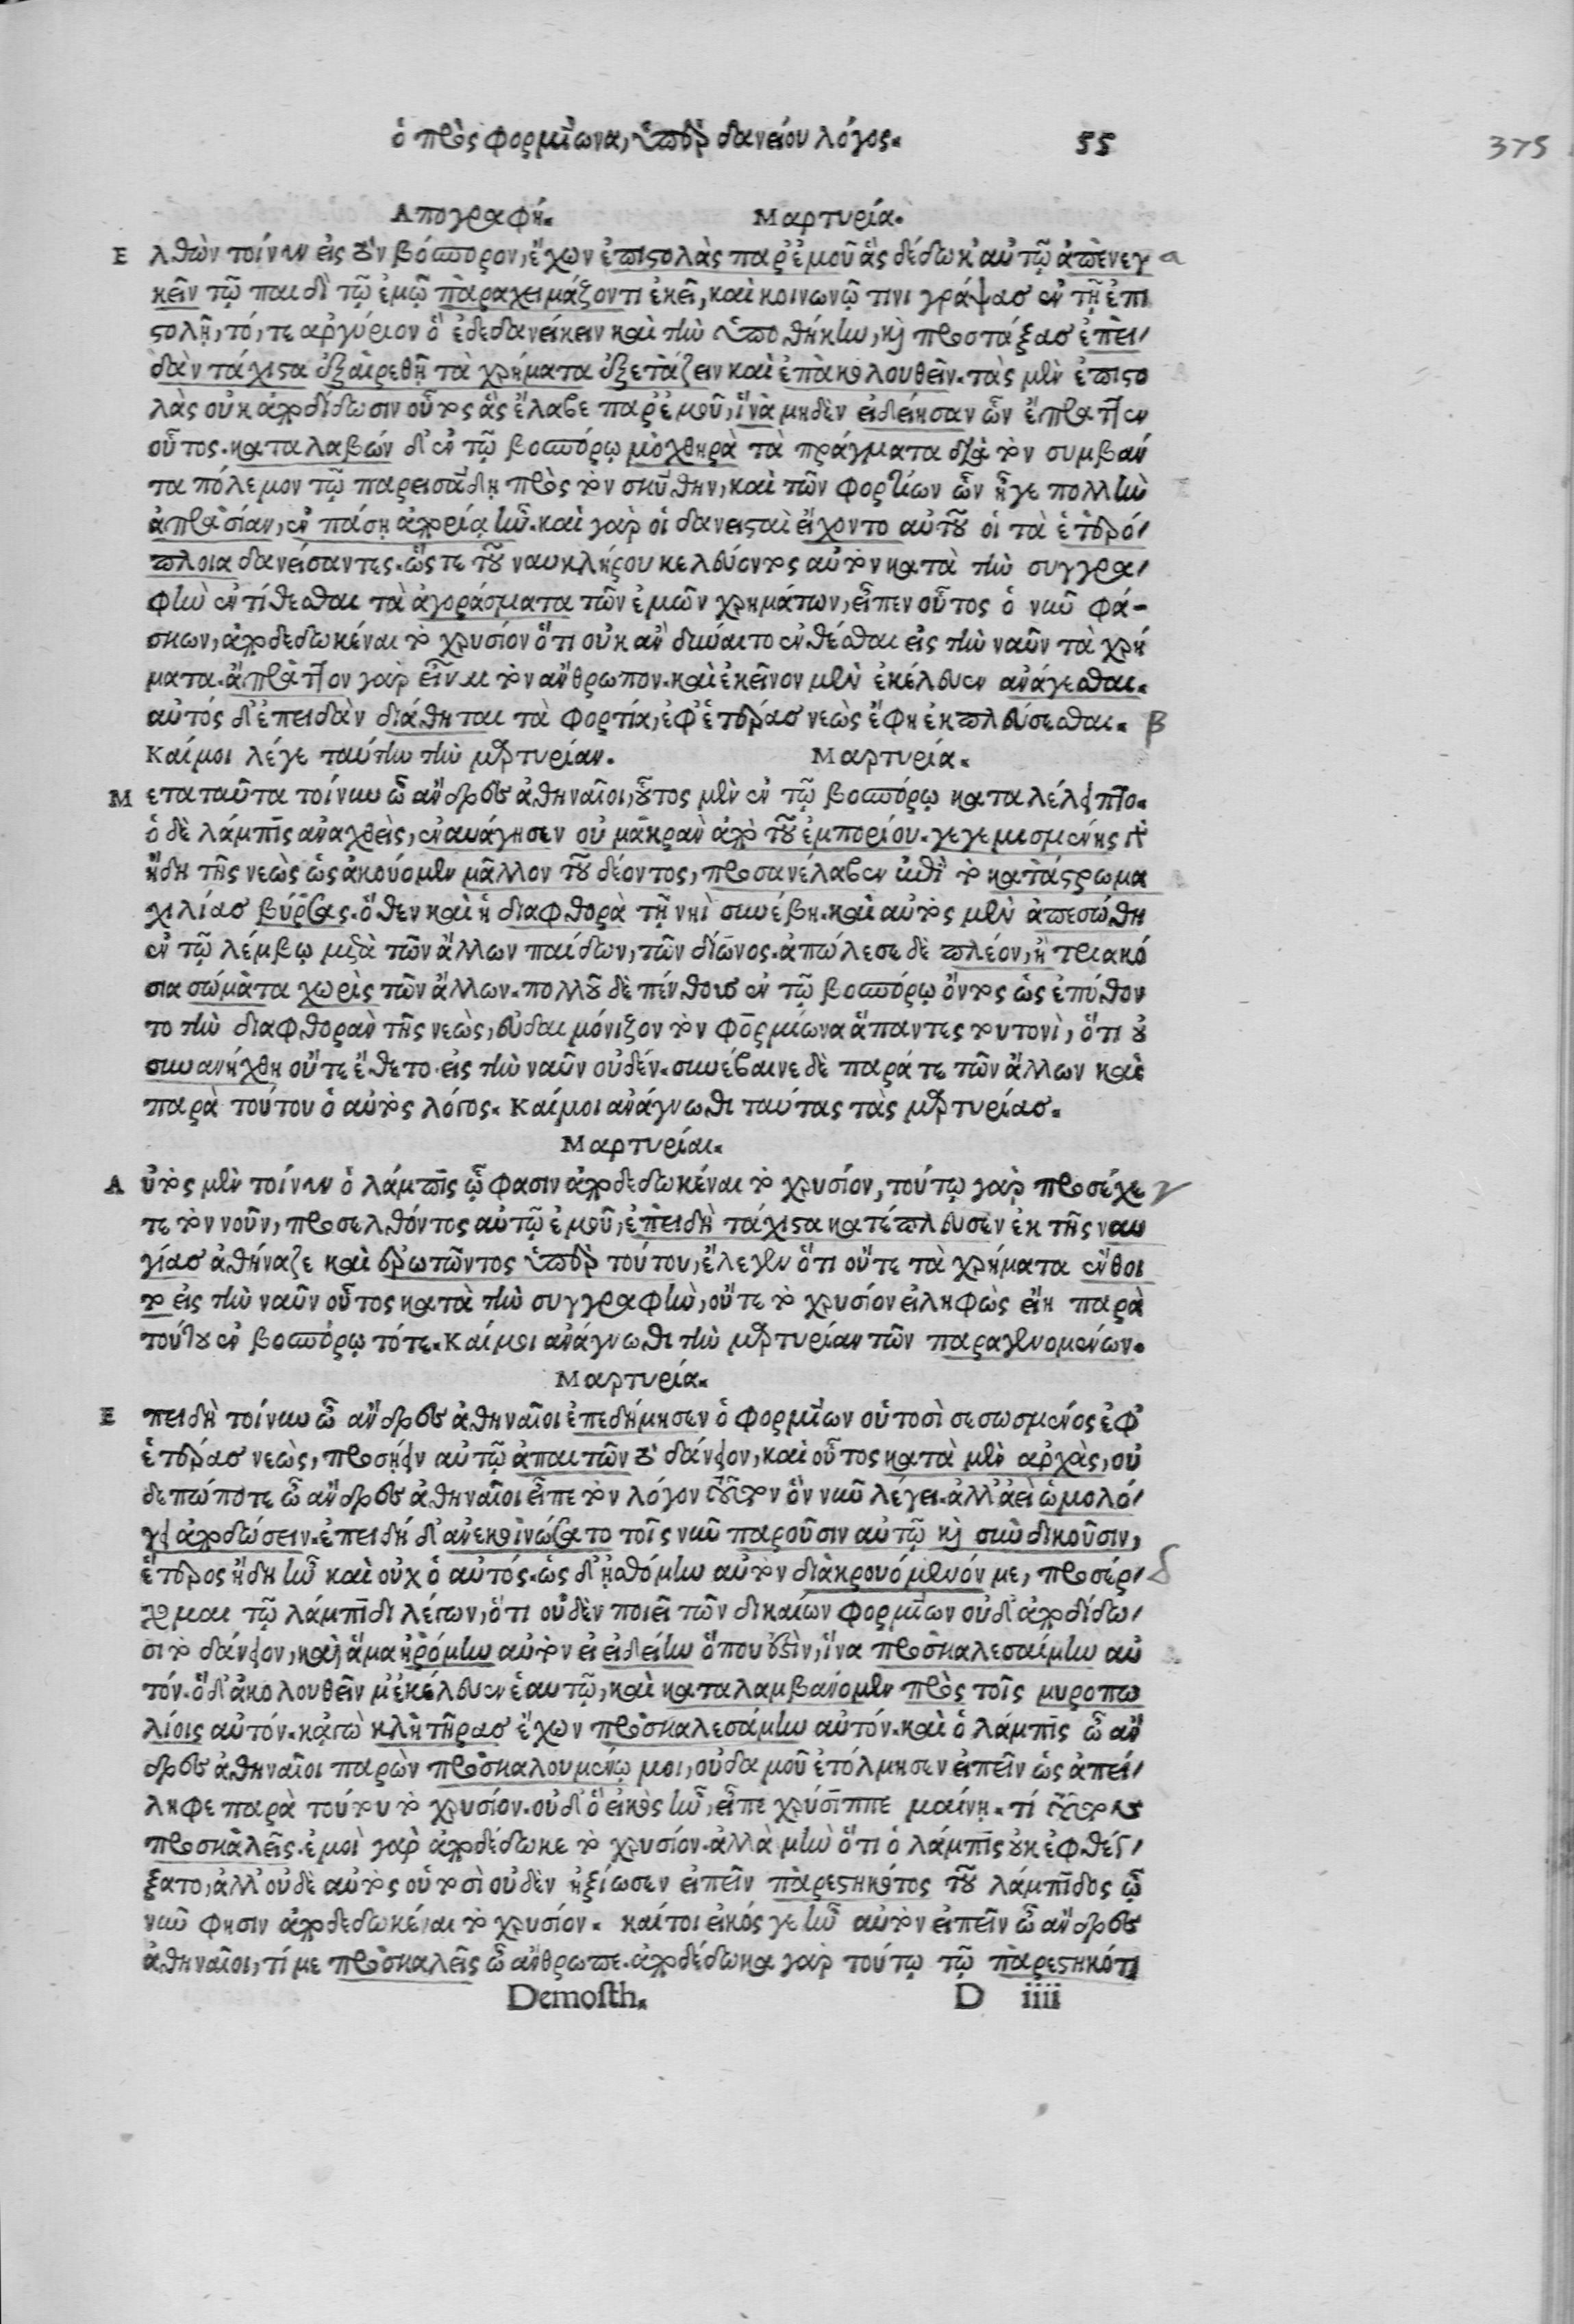 ὁ πρὸς φορμίωνα, ὑπὲρ δανείου λόγος. 55
375
Απογραφή. Μαρτυρία.
Ε λθὼν τοίνυν εἰς τὸν βόσπορον, ἔχων ἐπιστολὰς παρ' ἐμοῦ ἃς δέδωκ' αὐτῷ ἀπενεγ a
κεῖν τῷ παιδὶ τῷ ἐμῷ παραχειμάζοντι ἐκεῖ, καὶ κοινωνῷ τινι γράψας ἐν τῇ ἐπι
στολῇ, τό, τε ἀργύριον ὃ ἐδεδανείκειν καὶ τὴν ὑποθήκην, καὶ προστάξας ἐπει/
δὰν τάχιστα ἐξαιρεθῇ τὰ χρήματα ἐξετάζειν καὶ ἐπακολουθεῖν. τὰς μὲν ἐπιστο
λὰς οὐκ ἀποδίδωσιν οὗτος ἃς ἔλαβε παρ' ἐμοῦ, ἵνα μηδὲν εἰδείησαν ὧν ἔπραττεν
οὗτος. καταλαβὼν δ' ἐν τῷ βοσπόρῳ μοχθηρὰ τὰ πράγματα διὰ τὸν συμβαν
τα πόλεμον τῷ παρεισάδῃ πρὸς τὸν σκύθην, καὶ τῶν φορτίων ὧν ἦγε πολλὴν
ἀπρασίαν, ἐν πάσῃ ἀπορίᾳ ἦν. καὶ γὰρ οἱ δανεισταὶ εἴχοντο αὐτοῦ οἱ τὰ ἑτερό/
πλοια δανείσαντες. ὥστε τοῦ ναυκλήρου κελεύοντος αὐτὸν κατὰ τὴν συγγρα/
φὴν ἐντίθεσθαι τὰ ἀγοράσματα τῶν ἐμῶν χρημάτων, εἶπεν οὗτος ὁ νῦν φά-
σκων, ἀποδεδωκέναι τὸ χρυσίον ὅτι οὐκ ἂν δύναιτο ἐνθέσθαι εἰς τὴν ναῦν τὰ χρή
ματα. ἄπρατον γὰρ εἶναι τὸν ἄνθρωπον. καὶ ἐκεῖνον μὲν ἐκέλευεν ἀνάγεσθαι.
αὐτός δ' ἐπειδὰν διάθηται τὰ φορτία, ἐφ' ἑτέρας νεὼς ἔφη ἐκπλεύσεσθαι. β
Καί μοι λέγε ταύτην τὴν μαρτυρίαν. Μαρτυρία.
Μ ετα ταῦτα τοίνυν ὦ ἄνδρες ἀθηναῖοι, οὗτος μὲν ἐν τῷ βοσπόρῳ καταλέλειπτο.
ὁ δὲ λάμπις ἀναχθεὶς, ἐναυάγησεν οὐ μακρὰν ἀπὸ τοῦ ἐμπορίου. γεγεμισμένης γὰρ
ἤδη τῆς νεὼς ὡς ἀκούομεν μᾶλλον τοῦ δέοντος, προσανέλαβεν ἐπὶ τὸ κατάστρωμα
χιλίας βύρσας. ὅθεν καὶ ἡ διαφθορὰ τῇ νηὶ συνέβη. καὶ αὐτὸς μὲν ἀπεσώθη
ἐν τῷ λέμβῳ μετὰ τῶν ἄλλων παίδων, τῶν δίωνος. ἀπώλεσε δὲ πλέον, ἢ τριακό
σια σώματα χωρὶς τῶν ἄλλων. πολλοῦ δὲ πένθους ἐν τῷ βοσπόρῳ ὄντος ὡς ἐπύθον
το τὴν διαφθορὰν τῆς νεὼς, εὐδαιμόνιζον τὸν φορμίωνα ἅπαντες τουτονὶ, ὅτι οὐ
συνανήχθη οὔτε ἔθετο εἰς τὴν ναῦν οὐδέν. συνέβαινε δὲ παρά τε τῶν ἄλλων καὶ
παρὰ τούτου ὁ αὐτὸς λόγος. Καί μοι ἀνάγνωθι ταύτας τὰς μαρτυρίας.
Μαρτυρίαι.
Α ὐτὸς μὲν τοίνυν ὁ λάμπις ᾧ φασιν ἀποδεδωκέναι τὸ χρυσίον, τούτῳ γὰρ προσέχε γ
τε τὸν νοῦν, προσελθόντος αὐτῷ ἐμοῦ, ἐπειδὴ τάχιστα κατέπλευσεν ἐκ τῆς ναυ
γίας ἀθήναζε καὶ ἐρωτῶντος ὑπὲρ τούτου, ἔλεγεν ὅτι οὔτε τὰ χρήματα ἔνθοι
το εἰς τὴν ναῦν οὗτος κατὰ τὴν συγγραφὴν, οὔτε τὸ χρυσίον εἰληφὼς εἴη παρὰ
τούτου ἐν βοσπόρῳ τότε. Καί μοι ἀνάγνωθι τὴν μαρτυρίαν τῶν παραγενομένων.
Μαρτυρία.
Ε πειδὴ τοίνυν ὦ ἄνδρες ἀθηναῖοι ἐπεδήμησεν ὁ φορμίων οὑτοσὶ σεσωσμένος ἐφ'
ἑτέρας νεὼς, προσῄειν αὐτῷ ἀπαιτῶν τὸ δάνειον, καὶ οὗτος κατὰ μὲν ἀρχὰς, οὐ
δεπώποτε ὦ ἄνδρες ἀθηναῖοι εἶπε τὸν λόγον τοῦτον ὃν νῦν λέγει. ἀλλ' ἀεὶ ὡμολό/
γει ἀποδώσειν. ἐπειδὴ δ' ἀνεκοινώσατο τοῖς νῦν παροῦσιν αὐτῷ καὶ συνδικοῦσιν,
ἕτερος ἤδη ἦν καὶ οὐχ ὁ αὐτός. ὡς δ' ᾐσθόμην αὐτὸν διακρουόμενόν με, προσέρ/ δ
χομαι τῷ λάμπιδι λέγων, ὅτι οὐδὲν ποιεῖ τῶν δικαίων φορμίων οὐδ' ἀποδίδω/
σι τὸ δάνειον, καὶ ἅμα ἠρόμην αὐτὸν εἰ εἰδείην ὅπου ἐστὶν, ἵνα προσκαλεσαίμην αὐ
τόν. ὁ δ' ἀκολουθεῖν μ' ἐκέλευεν ἑαυτῷ, καὶ καταλαμβάνομεν πρὸς τοῖς μυροπω
λίοις αὐτόν. κἀγὼ κλητῆρας ἔχων προσκαλεσάμην αὐτόν. καὶ ὁ λάμπις ὦ ἄν
δρες ἀθηναῖοι παρὼν προσκαλουμένῳ μοι, οὐδαμοῦ ἐτόλμησεν εἰπεῖν ὡς ἀπεί/
ληφε παρὰ τούτου τὸ χρυσίον. οὐδ' ὃ εἰκὸς ἦν, εἶπε χρύσιππε μαίνῃ. τί τοῦτον
προσκαλεῖς. ἐμοὶ γὰρ ἀποδέδωκε τὸ χρυσίον. ἀλλὰ μὴν ὅτι ὁ λάμπις οὐκ ἐφθέγ/
ξατο, ἀλλ' οὐδὲ αὐτὸς οὑτοσὶ οὐδὲν ἠξίωσεν εἰπεῖν παρεστηκότος τοῦ λάμπιδος ᾧ
νῦν φησιν ἀποδεδωκέναι τὸ χρυσίον. καίτοι εἰκός γε ἦν αὐτὸν εἰπεῖν ὦ ἄνδρες
ἀθηναῖοι, τί με προσκαλεῖς ὦ ἄνθρωπε. ἀποδέδωκα γὰρ τούτῳ τῷ παρεστηκότι
Demosth. D iiii